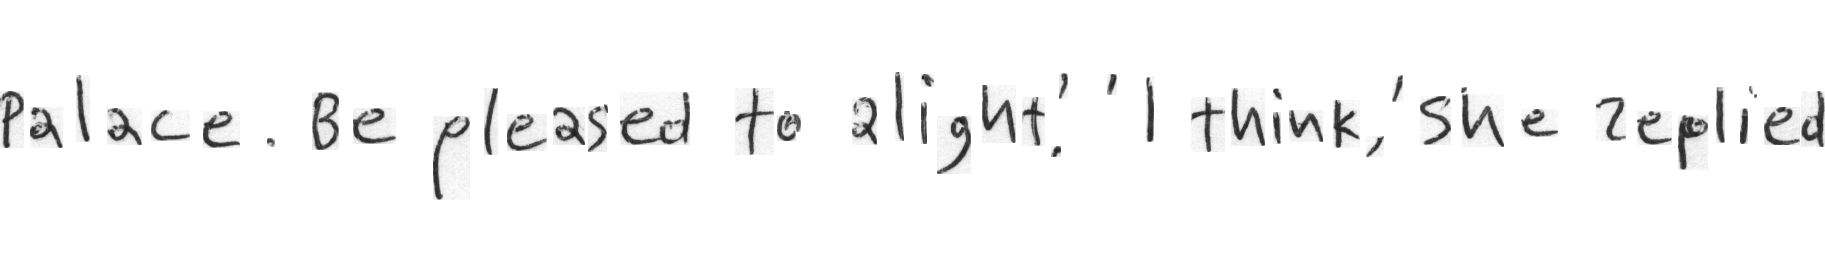 Palace. Be pleased to alight.' 'I think,' she replied